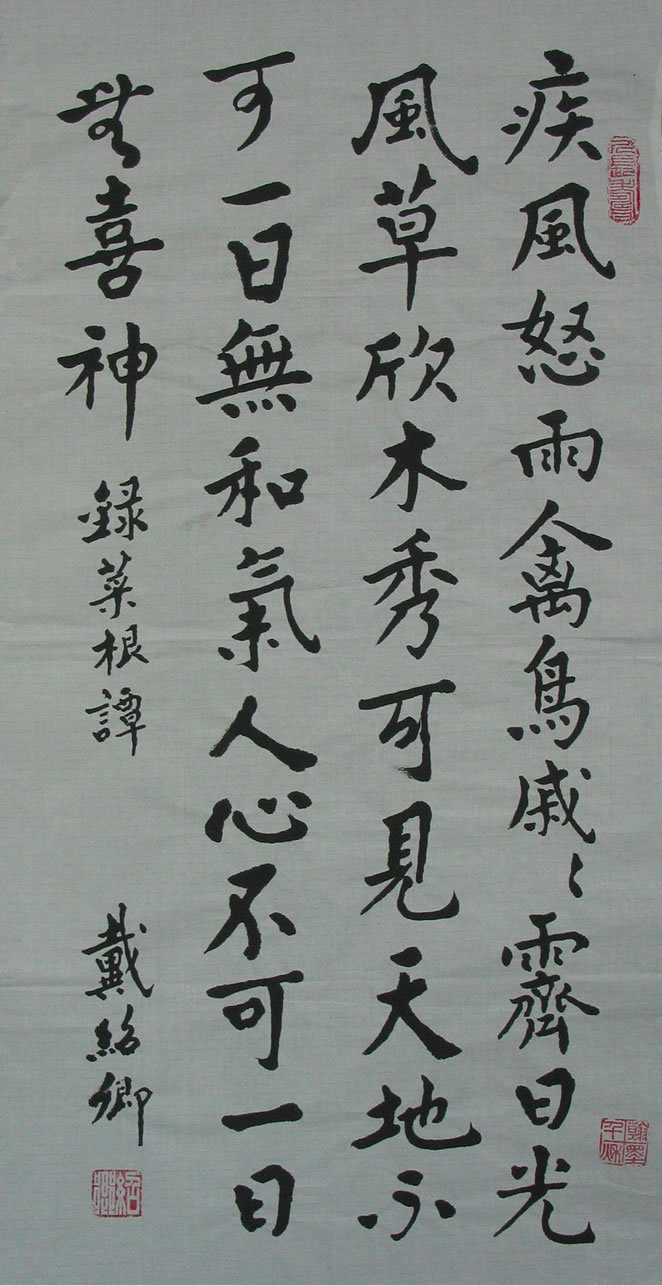 疾風怒雨禽鳥戚〻霽日光
風草欣木秀可見天地不
可一日無和氣人心不可一日
無喜神
録菜根譚
戴紹卿
翰墨千秋
紹卿